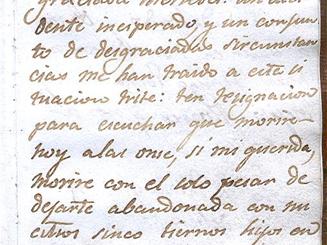 graciada
dente inesperado, y un conjun
to de desgraciadas sircunstan
cias me han traido a esta si
tuacion triste: ten resignacion
para escuchar que morire
hoy alas onse, si mi querida,
morire con el solo pesar de
dejarte abandonada con mi
sinco tiernos hijos en